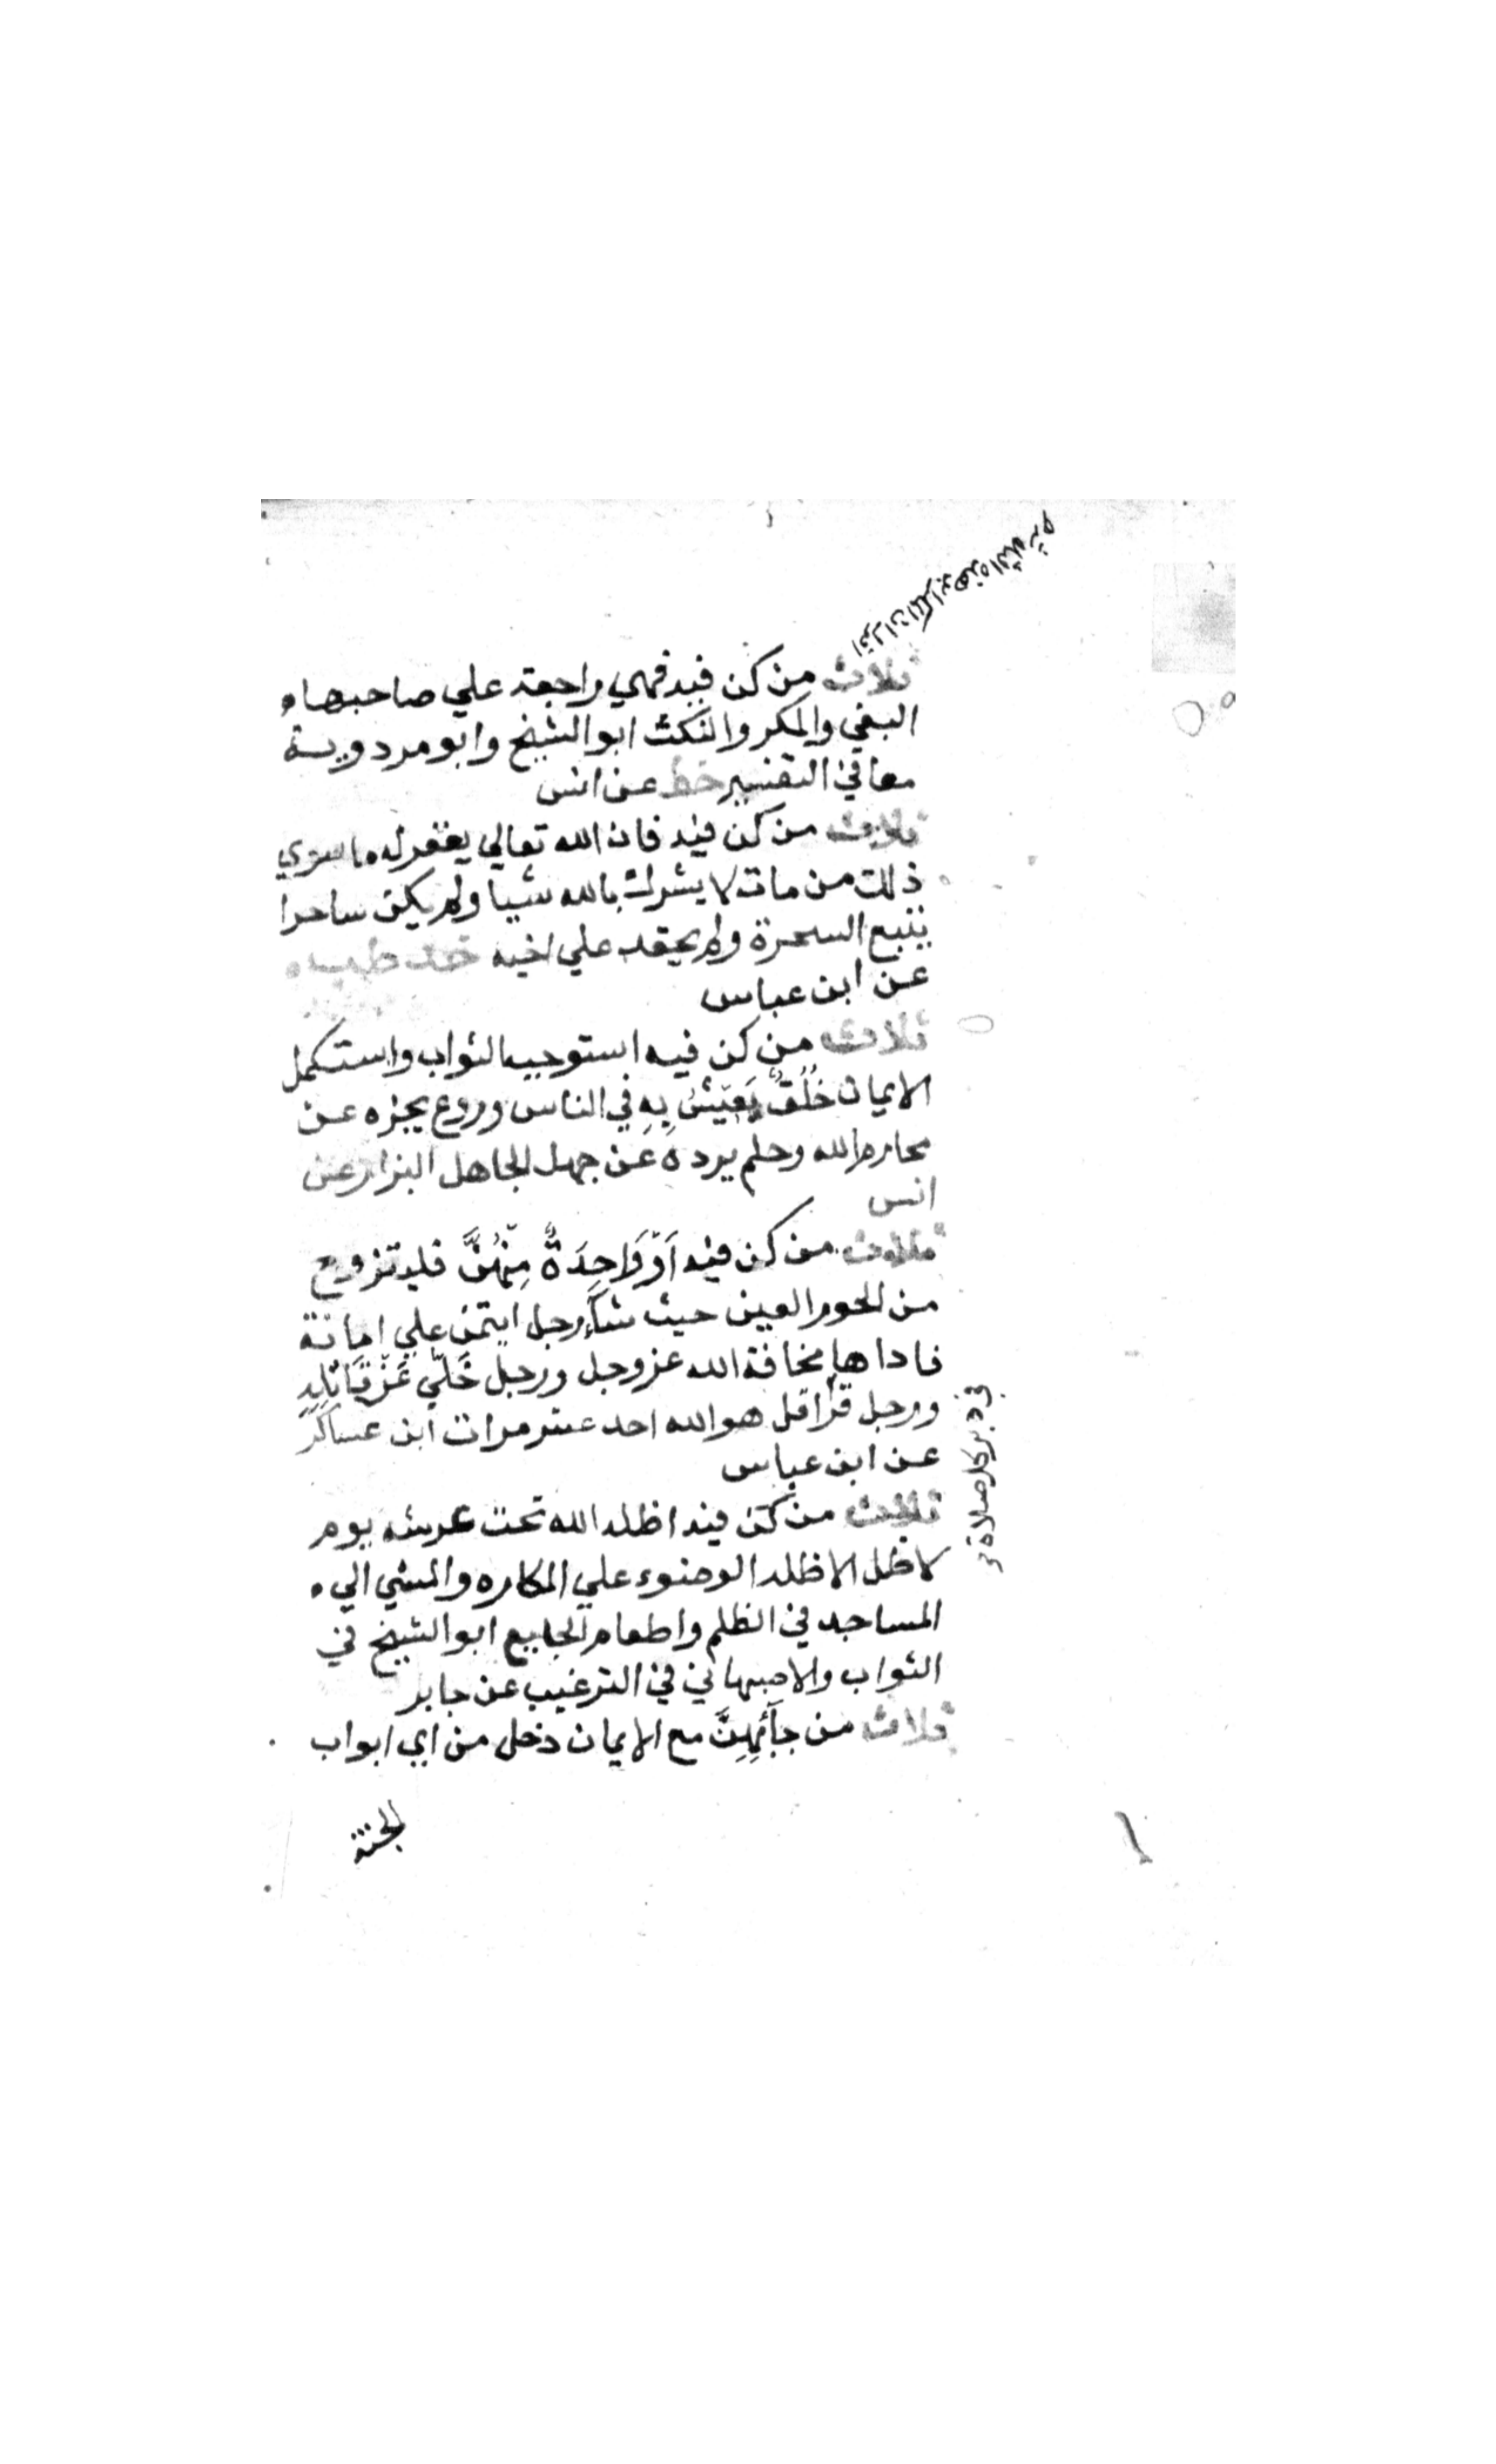 ثلاث من كن فيه فهي راجعة علي صاحبها
البغي والمكر والنكث ابو الشيخ وابو مردوية
معا في التفسير خط عن انس
ثلاث من كن فيه فان الله تعالي يغفر له ما سوي
ذلك من مات لا يشرك بالله شيا ولم يكن ساحرا
يتبع السحرة ولم يحقد علي اخيه خد طب
عن ابن عباس
ثلاث من كن فيه استوجب الثواب واستكمل
الايمان خُلُقٌ يَعِيْشُ بِهِ في الناس وورع يحجزه عن
محارم الله وحلم يرده عَن جهل الجاهل البزار عن
انس
ثلاث من كن فيه اَوْ وَاحِدَةٌ مِنْهُنَّ فليتزوج
من الحور العين حيث شآء رجل ايتمن علي امانة
فاداها مخافة الله عز وجل ورجل خَلّي عَنْ قَاتِلِهِ
ورجل قرا قل هو الله احد عشر مرات ابن عساكر
عن ابن عباس
في دبر كل صلاة
ثلاث من كن فيه اظله الله تحت عرشه يوم
لا ظل الا ظله الوضوء علي المكاره والمشي الي
المساجد في الظلم واطعام الجايع ابو الشيخ في
الثواب والاصبهاني في الترغيب عن جابر
ثلاث من جآئهن مع الايمان دخل من اي ابواب
الجنة